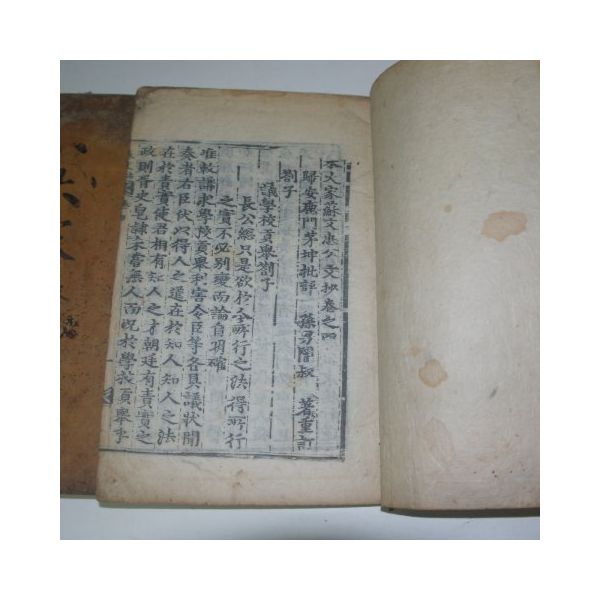 宋大家蘇文忠公文抄卷之四
歸安鹿門茅坤批評 孫男闇叔 著重訂
劄子
議學校貢舉劄子
長公總只是欲於今所行之法得所行
之實不必別變而論自明確
准敕講求學校貢舉利害令臣等各具議狀聞
奏者右臣伏以得人之道在於知人知人之法
在於責實使君相有知人之才朝廷有責實之
政則胥史皂隸未嘗無人而況於學校貢舉乎